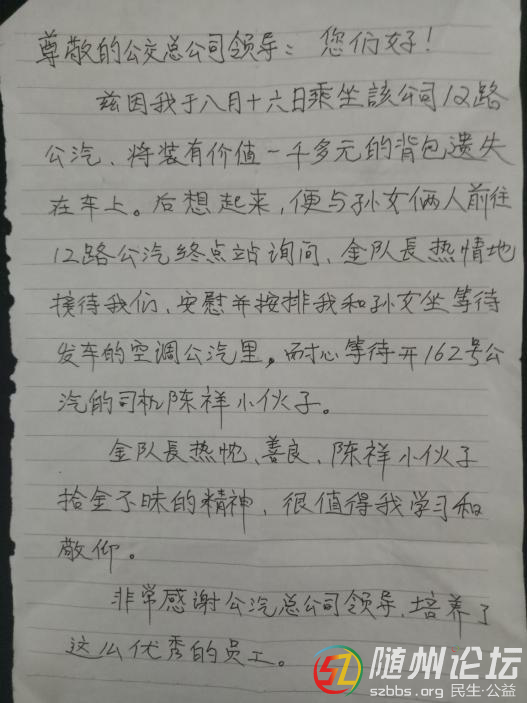 尊敬的公交总公司领导：您们好！
兹因我于八月十六日乘坐該公司12路
公汽、将装有价值一千多元的背包遗失
在车上。后想起来，便与孙女俩人前往
12路公汽终点站询问、金队長热情地
接待我们、安慰并按排我和孙女坐等待
发车的空调公汽里，耐心等待开162号公
汽的司机陈祥小伙子。
金队長热忱、善良、陈祥小伙子
拾金不昧的精神，很值得我学习和
敬仰。
非常感谢公汽总公司领导、培养了
这么优秀的员工。
随州论坛
szbbs.org 民生·公益